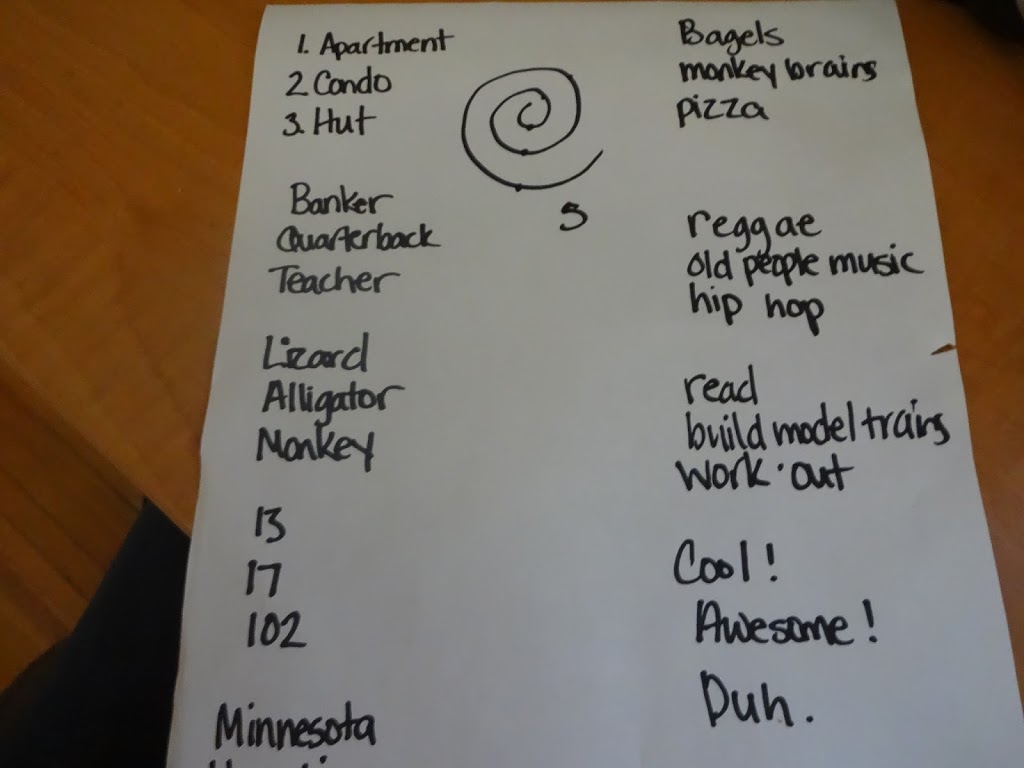 1. Apartment
2. Condo
3. Hut
Banker
Quarterback
Teacher
Lizard
Alligator
Monkey
13
17
102
Minnesota
5
Bagels
monkey brains
pizza
reggae
old people music
hip hop
read
build model trains
work out
Cool!
Awesome!
Duh.